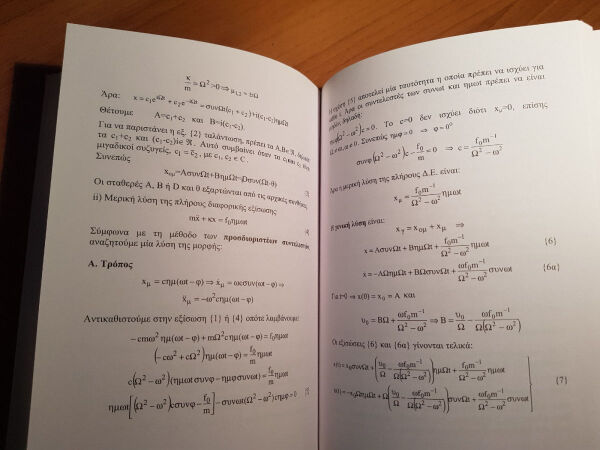 κ/m = Ω² > 0 ⇒ μ₁,₂ = ±iΩ
Άρα: x = c₁e^{iΩt} + c₂e^{-iΩt} = συνΩt(c₁ + c₂) + i(c₁-c₂)ημΩt
Θέτουμε A=c₁+c₂ και B=i(c₁-c₂).
Για να παριστάνει η εξ. {2} ταλάντωση, πρέπει τα A,B∈ℜ, δηλαδή
τα c₁+c₂ και i(c₁-c₂)∈ ℜ. Αυτό συμβαίνει όταν τα c₁ και c₂ είναι
μιγαδικοί συζυγείς, c₁ = c̄₂, με c₁, c₂ ∈ C.
Συνεπώς
x_ομ=AσυνΩt+BημΩt=Dσυν(Ωt-θ)
Οι σταθερές A, B ή D και θ εξαρτώνται από τις αρχικές συνθήκες.
ii) Μερική λύση της πλήρους διαφορικής εξίσωσης:
mẍ + κx = f₀ημωt
Σύμφωνα με τη μέθοδο των προσδιοριστέων συντελεστών
αναζητούμε μία λύση της μορφής:
Α. Τρόπος
x_μ = cημ(ωt-φ) ⇒ ẋ_μ = ωcσυν(ωt-φ) ⇒
ẍ_μ = -ω²cημ(ωt-φ)
Αντικαθιστούμε στην εξίσωση {1} ή {4} οπότε λαμβάνουμε:
-cmω²ημ(ωt-φ) + mΩ²cημ(ωt-φ) = f₀ημωt
(-cω² + cΩ²)ημ(ωt-φ) = f₀/m ημωt
c(Ω² - ω²)(ημωtσυνφ - ημφσυνωt) = f₀/m ημωt
ημωt[(Ω² - ω²)cσυνφ - f₀/m] - συνωt(Ω² - ω²)cημφ = 0
Η σχέση {5} αποτελεί μία ταυτότητα η οποία πρέπει να ισχύει για
t. Άρα οι συντελεστές των συνωt και ημωt πρέπει να είναι
δηλαδή:
(Ω² - ω²)c = 0. Το c=0 δεν ισχύει διότι x₀=0, επίσης
Συνεπώς ημφ = 0 ⇒ φ = 0°
συνφ(Ω² - ω²)c - f₀/m = 0 ⇒ c = f₀m⁻¹/(Ω² - ω²)
Άρα η μερική λύση της πλήρους Δ.Ε. είναι:
x_μ = f₀m⁻¹/(Ω² - ω²) ημωt
Η γενική λύση είναι:
x_γ = x_ομ + x_μ ⇒
x = AσυνΩt + BημΩt + f₀m⁻¹/(Ω² - ω²) ημωt {6}
ẋ = -AΩημΩt + BΩσυνΩt + ωf₀m⁻¹/(Ω² - ω²) συνωt {6α}
Για t=0 ⇒ x(0) = x₀ = A και
υ₀ = BΩ + ωf₀m⁻¹/(Ω² - ω²) ⇒ B = υ₀/Ω - ωf₀m⁻¹/(Ω(Ω² - ω²))
Οι εξισώσεις {6} και {6α} γίνονται τελικά:
x(t) = x₀συνΩt + (υ₀/Ω - ωf₀m⁻¹/(Ω(Ω² - ω²)))ημΩt + f₀m⁻¹/(Ω² - ω²) ημωt
υ(t) = -x₀ΩημΩt + Ω(υ₀/Ω - ωf₀m⁻¹/(Ω(Ω² - ω²)))συνΩt + ωf₀m⁻¹/(Ω² - ω²) συνωt {7}